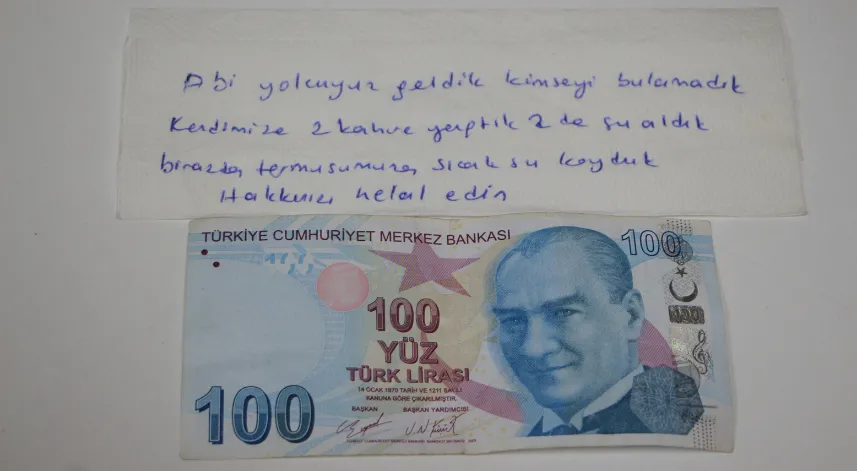 Abi yolcuyuz geldik kimseyi bulamadık
Kendimize 2 kahve yaptık 2 de su aldık
birazda termusumuza sıcak su koyduk
Hakkınızı helal edin
TÜRKİYE CUMHURİYET MERKEZ BANKASI
100
100
YÜZ
TÜRK LİRASI
14 OCAK 1970 TARİH VE 1211 SAYILI
KANUNA GÖRE ÇIKARILMIŞTIR.
BAŞKAN BAŞKAN YARDIMCISI
100
100